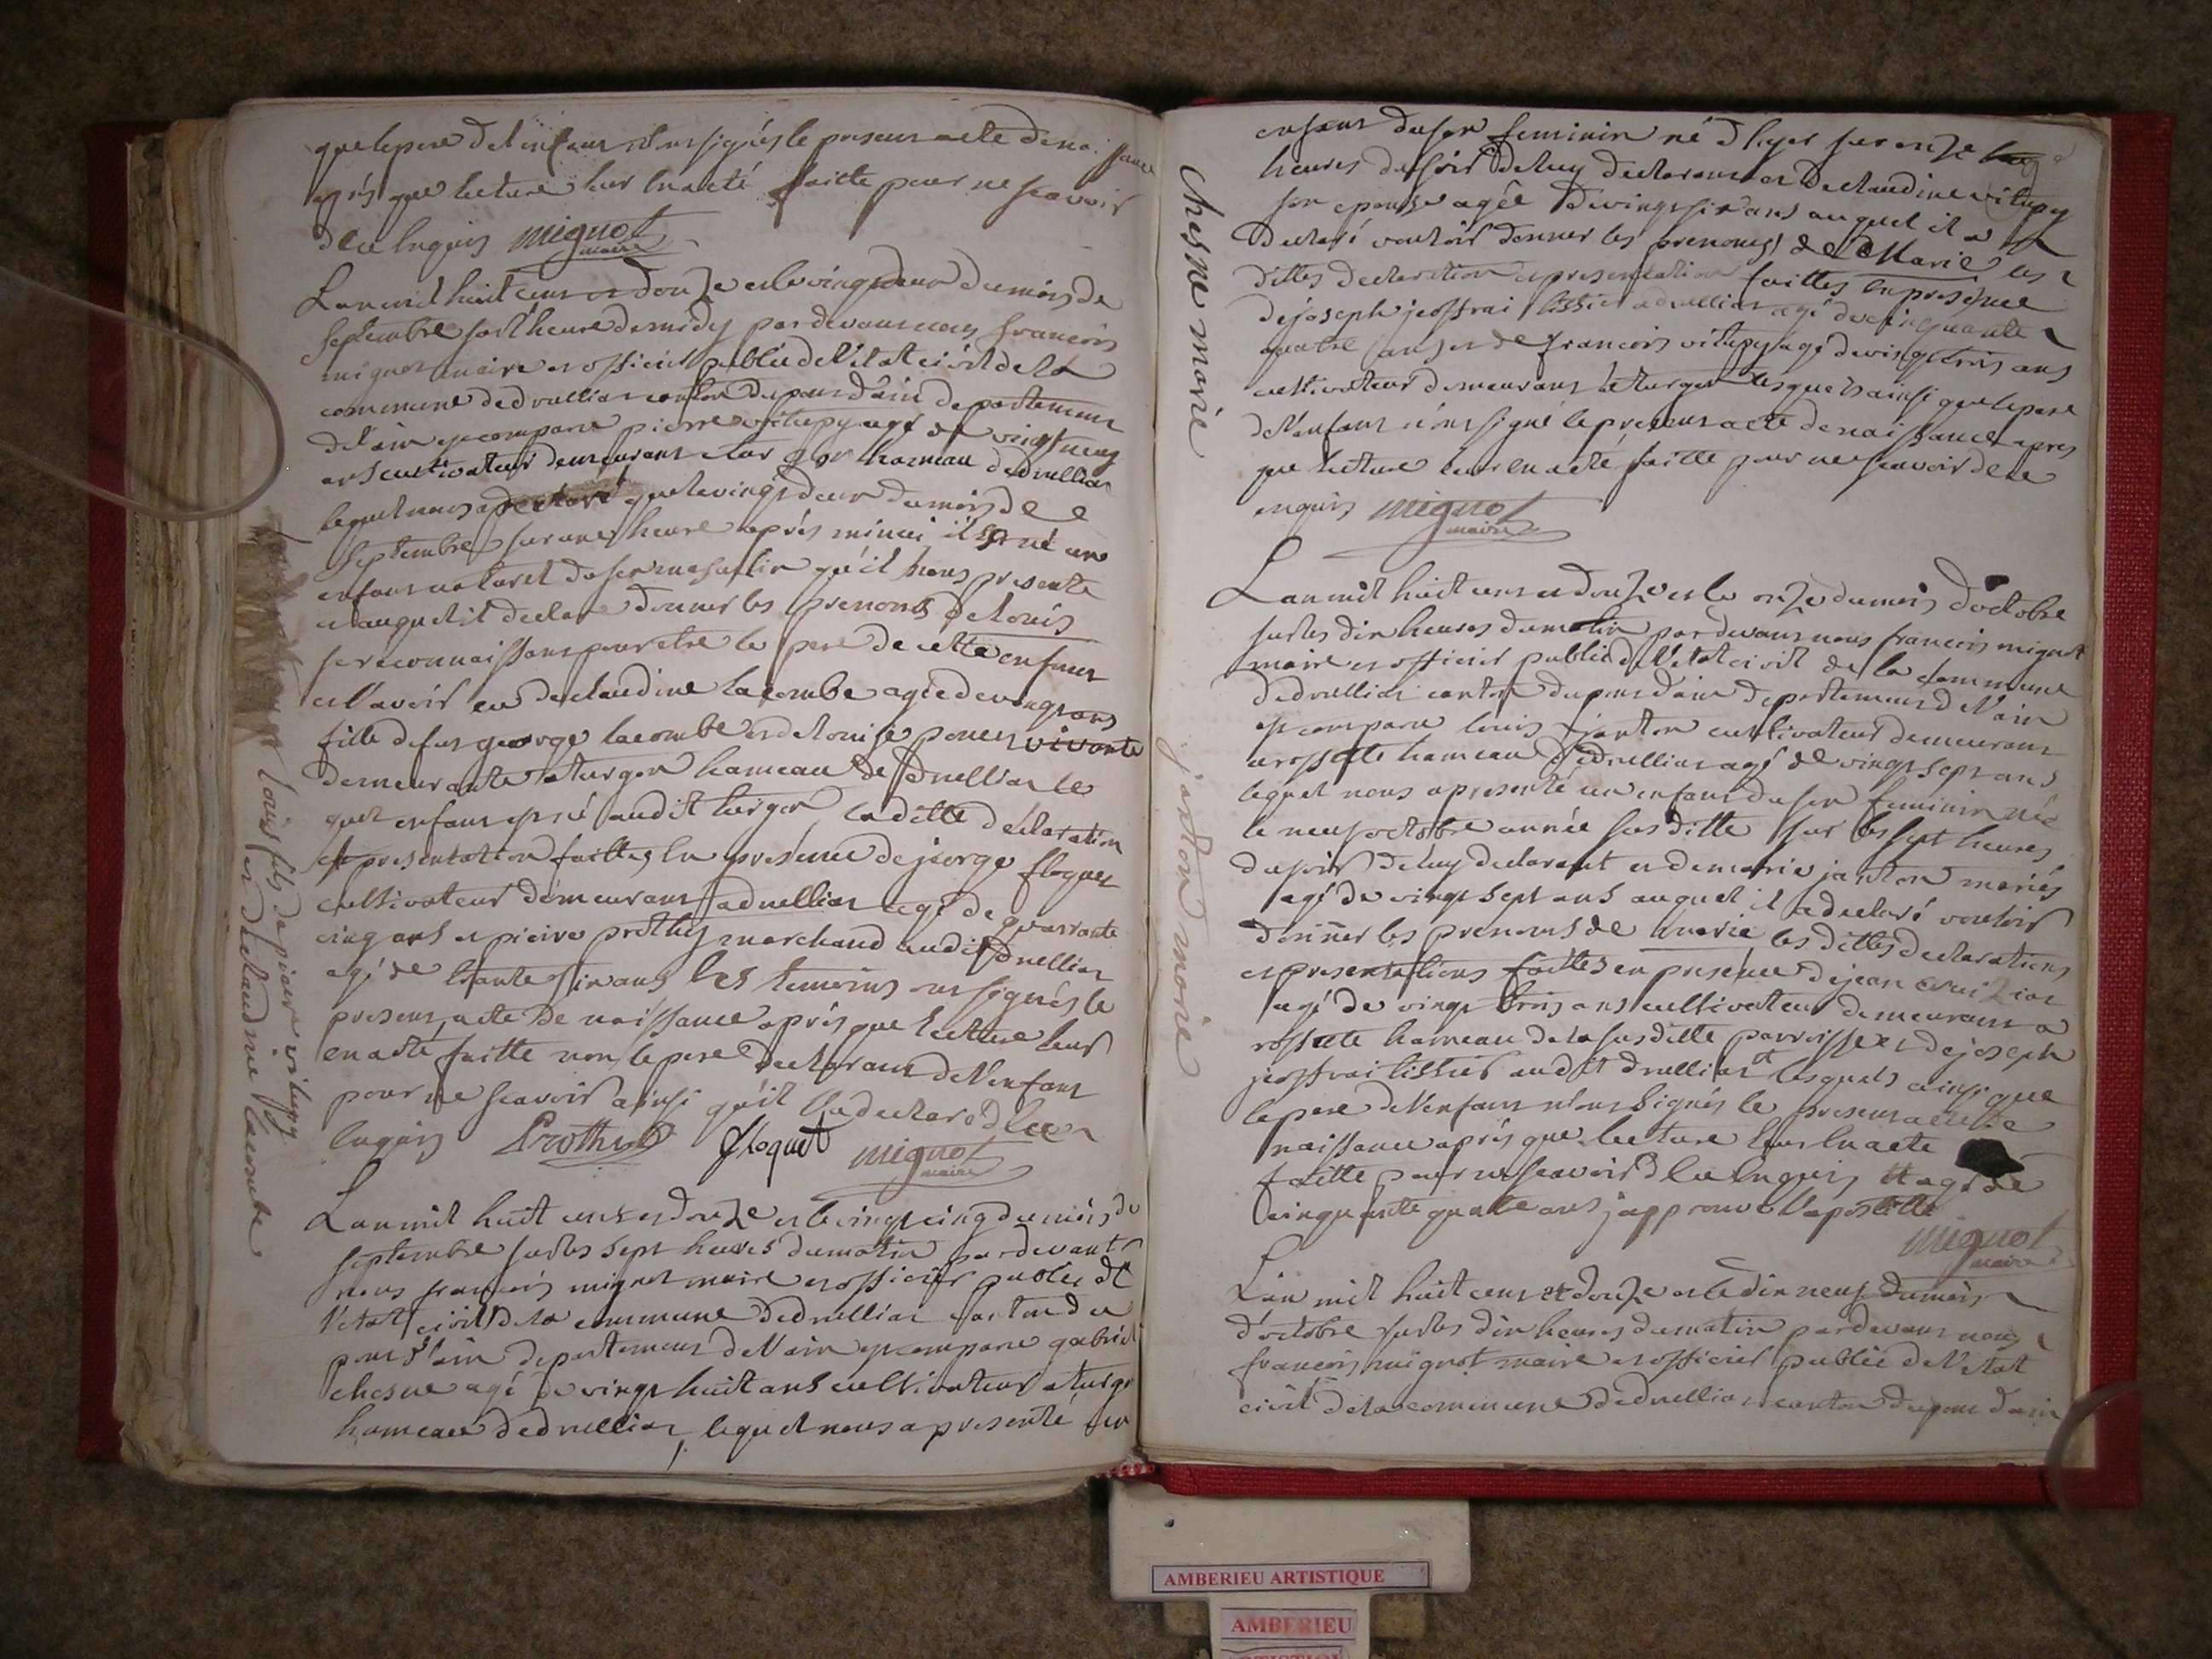 que le pere de l'enfant n'ont signés le present acte de naissance
après que lecture leur en a eté faitte pour ne scavoir
de ce enquis mignot
maire
L'an mil huit cent et douze et le vingt deux du mois de
septembre sur l'heure de midy par devant nous francois
mignot maire et officier public de l'etat civil de la
commune de druilliat canton du pont d'ain departement
de l'ain est comparu pierre vitupy agé de vingt neuf
ans cultivateur demeurant a turgon hameau de druillia
lequel nous a declaré que le vingt deux du mois de
septembre sur une heure après minui il est né un
enfant naturel du sexe masculin qu'il nous presente
et auquel il declare donner les prenoms de Louis
se reconnaissant pour etre le pere de cette enfant
et l'avoir eu de claudine lacombe agée de vingt ans
fille de fut george lacombe et de louise poncet vivante
demeurante a turgon hameau de druillia le
quel enfant est né audit turgon la ditte declaration
et presentation faittes en presence de jeorge floquet
cultivateur demeurant a druilliat agé de quarante
cinq ans et pierre prothes marchand audit druillia
agé de trante six ans les temoins ont signés le
present acte de naissance après que lecture leur
en a eté faitte non le pere declarant de l'enfant
pour ne scavoir ainsi qu'il l'a declaré de ce
enquis Prothes floquet mignot
maire
L'an mil huit cent et douze et le vingt cinq du mois de
septembre sur les sept heures du matin par devant
nous francois mignot maire et officier public de
l'etat civil de la commune de druillia canton du
pont d'ain departement de l'ain est comparu gabriel
chesne agé de vingt huit ans cultivateur a turgon
hameau de druillia lequel nous a presenté un
Louis fils de pierre vitupy
et de claudine lacombe
enfant du sexe feminin né d'hyer sur onze
heures du soir de luy declarant et de claudine vitupy
son epouse agée de vingt six ans auquel il a
declaré vouloir donner les prenoms de Marie les
dittes declaration et presentation faittes en presence
de joseph jossrai tissier a druilliat agé de cinquante
quatre ans et de francois vitupy agé de vingt trois ans
cultivateur demeurant a turgon lesquels ainsi que le pere
de l'enfant n'ont signé le present acte de naissance apres
que lecture leur en a eté faitte pour ne scavoir de ce
enquis mignot
maire
chesne marie
L'an mil huit cent et douze et le onze du mois d'octobre
sur les dix heures du matin par devant nous francois mignot
maire et officier public de l'etat civil de la commune
de druillia canton du pont d'ain departement de l'ain
est comparu louis janton cultivateur demeurant
a rossette hameau de druilliat agé de vingt sept ans
lequel nous a presenté un enfant du sexe feminin née
le neuf octobre année susditte sur les sept heures
du soir de luy declarant et de marie janton mariés
agé de vingt sept ans auquel il a declaré vouloir
donner les prenoms de marie les dittes declarations
et presentations faittes en presence de jean
agé de vingt trois ans cultivateur demeurant a
rossette hameau de la susditte parroisse et de joseph
jossrai tissier audit druilliat lesquels ainsi que
le pere de l'enfant n'ont signés le present acte de
naissance après que lecture leur en a eté
faitte pour ne scavoir de ce enquis et agé de
cinquante quatre ans j'approuve l'apostille
mignot
maire
janton marie
L'an mil huit cent et douze et le dix neuf du mois
d'octobre sur les dix heures du matin par devant nous
francois mignot maire et officier public de l'etat
civil de la commune de druillia canton du pont d'ain
AMBERIEU ARTISTIQUE
AMBERIEU
ARTISTIQUE